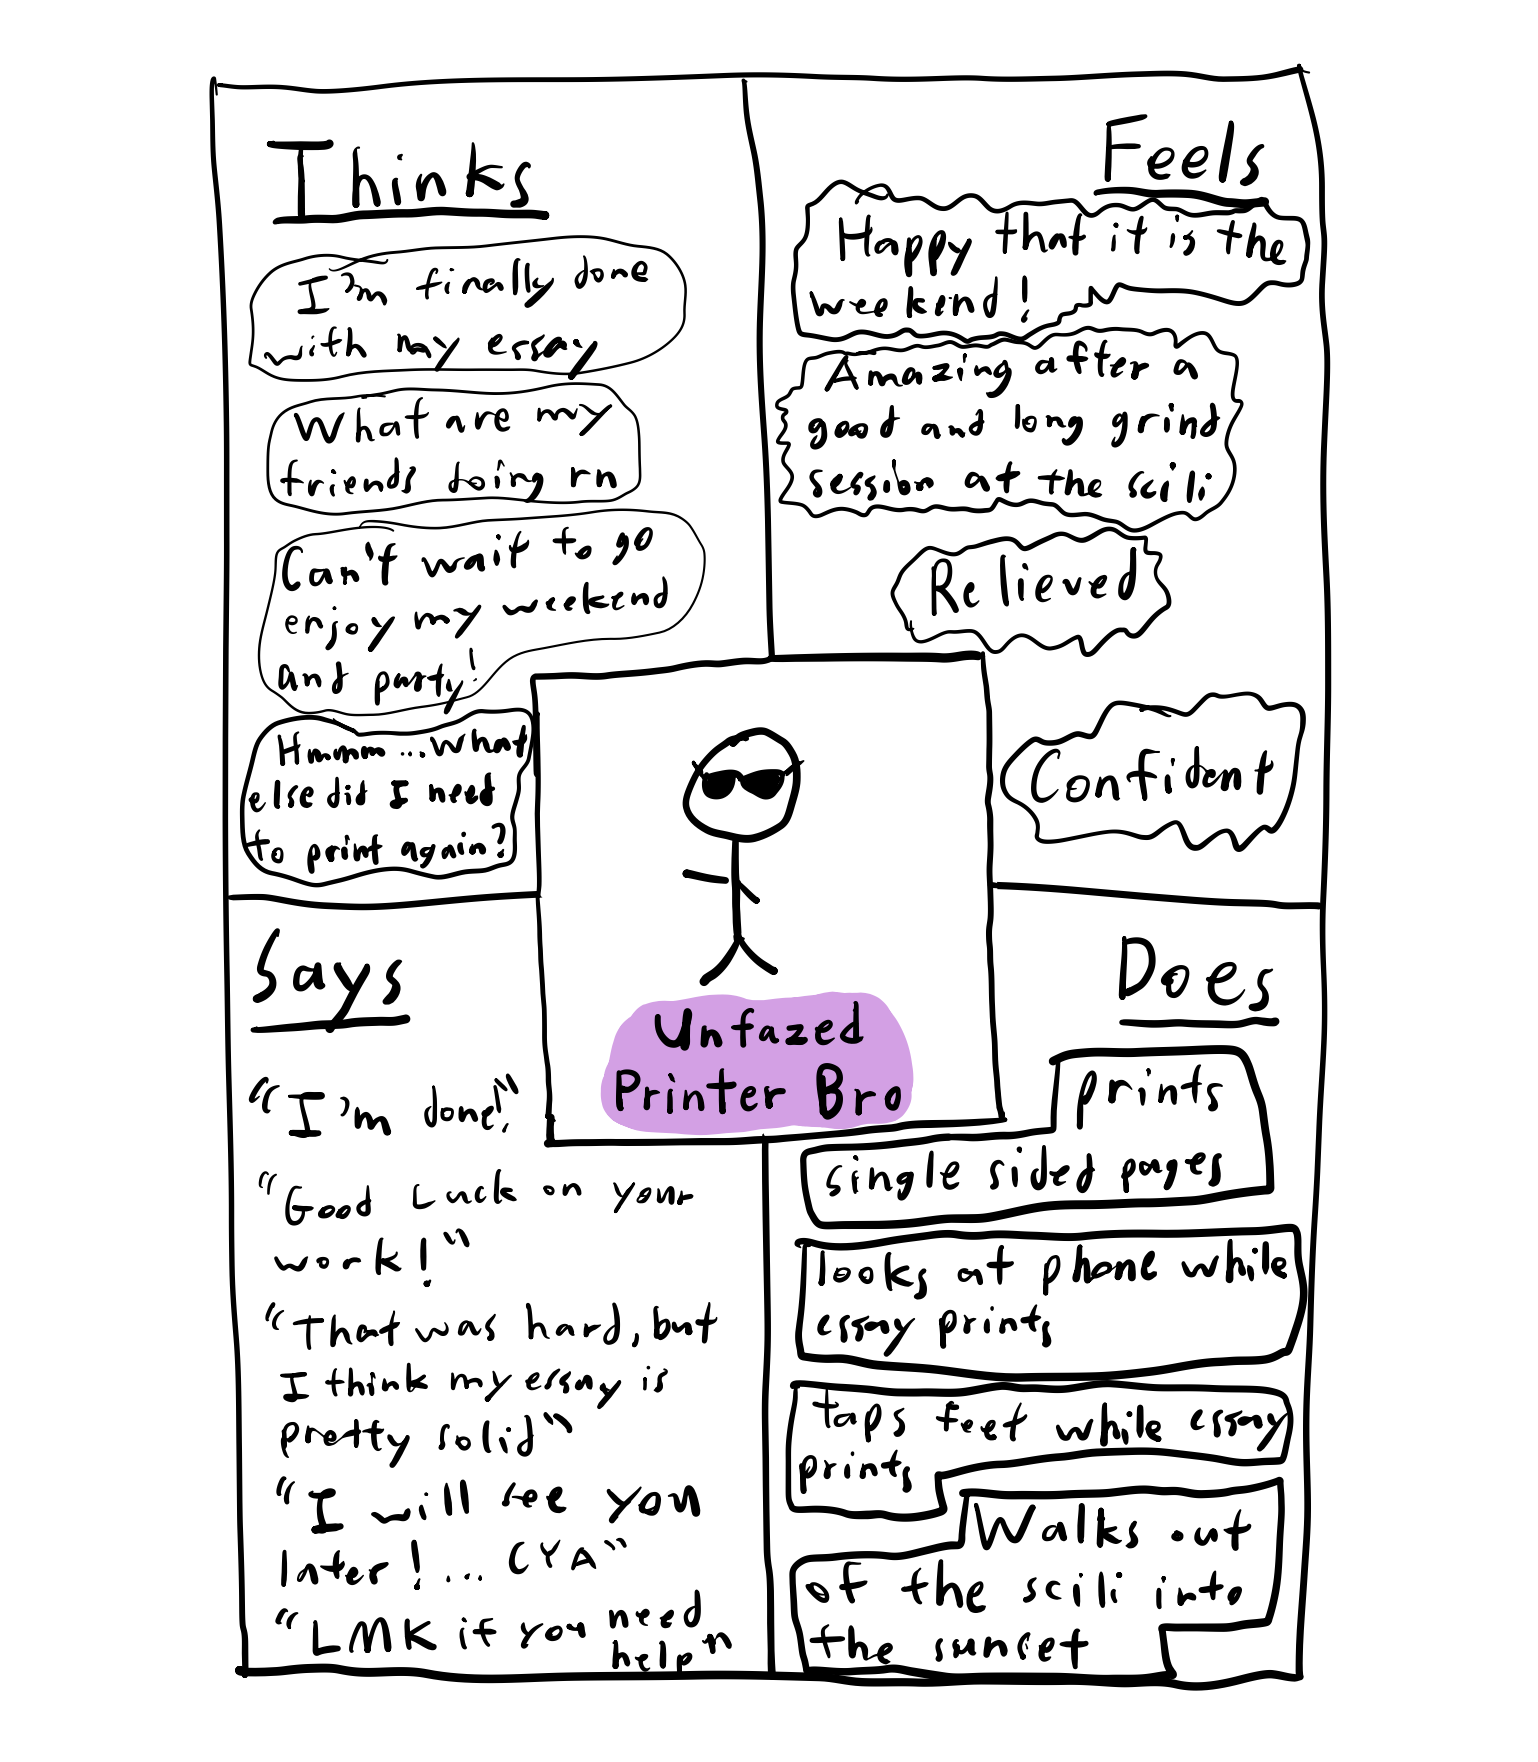 Thinks
I'm finally done
with my essay
What are my
friends doing rn
Can't wait to go
enjoy my weekend
and party!
Hmmm...What
else did I need
to print again?
Feels
Happy that it is the
weekend!
Amazing after a
good and long grind
session at the scili
Relieved
Confident
Unfazed
Printer Bro
Says
"I'm done!"
"Good Luck on your
work!"
"That was hard, but
I think my essay is
pretty solid"
"I will see you
later!... CYA"
"LMK if you need
help"
Does
prints
single sided pages
looks at phone while
essay prints
taps feet while essay
prints
Walks out
of the scili into
the sunset